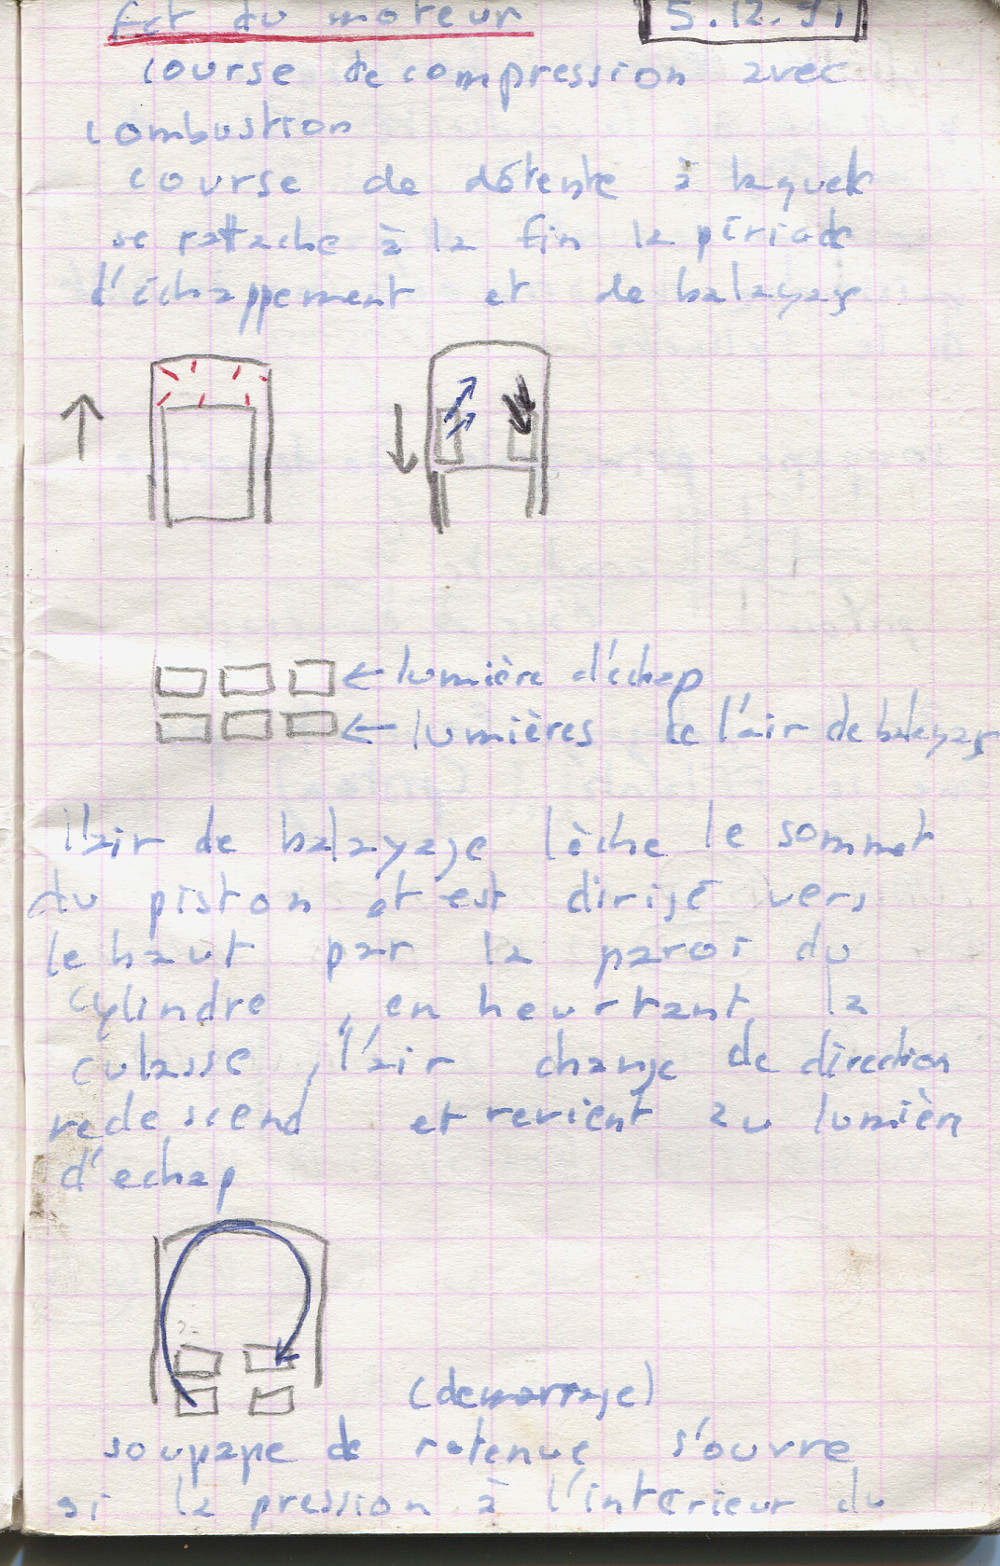 fct du moteur 5.12.91
course de compression avec
combustion
course de détente à laquele
se rattache à la fin la période
d'échappement et de balayage
← lumière d'échap
← lumières de l'air de balayage
l'air de balayage lèche le sommet
du piston et est dirigé vers
le haut par la paroi du
cylindre, en heurtant la
culasse, l'air change de direction
redescend et revient au lumière
d'echap
(demarrage)
soupape de retenue s'ouvre
si la pression à l'intérieur du